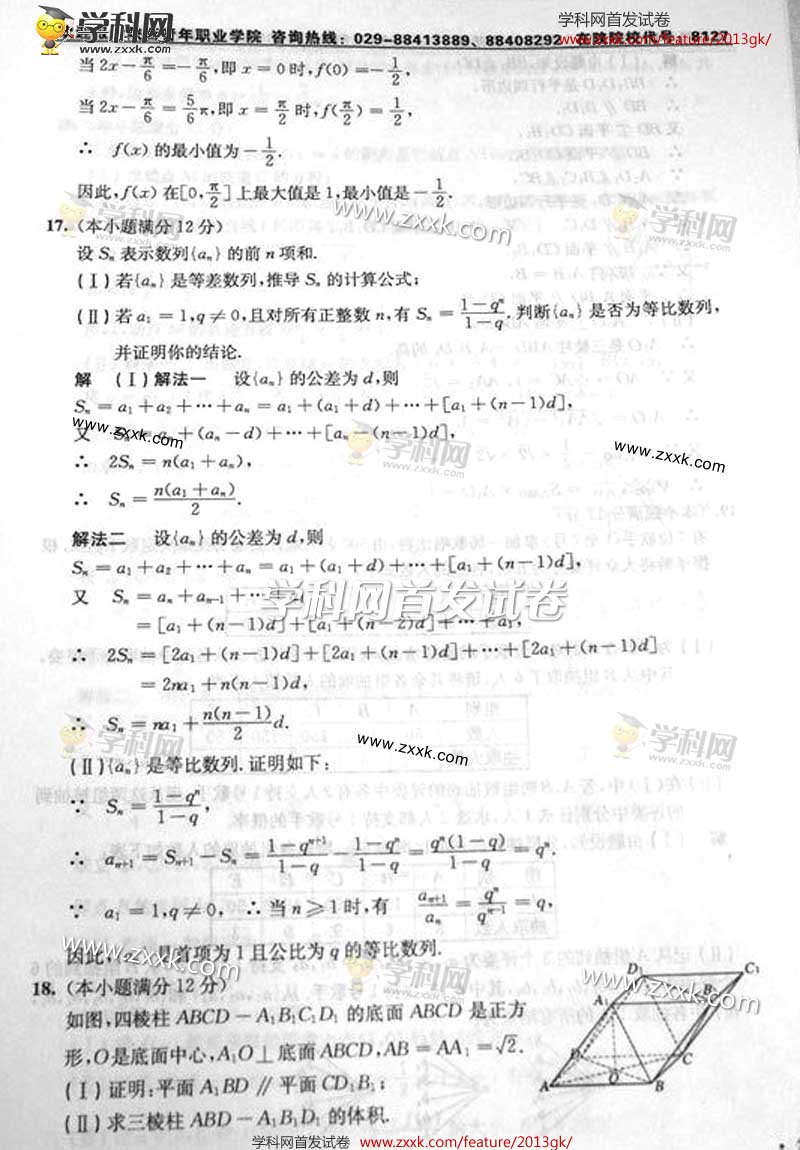 学科网首发试卷
www.zxxk.com/feature/2013gk/
年职业学院 咨询热线：029-88413889、88408292 在陕院校代号：8127
学科网
www.zxxk.com
当 2x − π/6 = −π/6，即 x = 0 时，f(0) = −1/2，
当 2x − π/6 = 5/6 π，即 x = π/2 时，f(π/2) = 1/2，
∴ f(x) 的最小值为 −1/2.
因此，f(x) 在[0, π/2]上最大值是 1，最小值是 −1/2.
17.（本小题满分12分）
设 Sₙ 表示数列{aₙ}的前 n 项和.
(Ⅰ) 若{aₙ}是等差数列，推导 Sₙ 的计算公式；
(Ⅱ) 若 a₁ = 1, q ≠ 0，且对所有正整数 n，有 Sₙ = (1−qⁿ)/(1−q). 判断{aₙ}是否为等比数列，
并证明你的结论.
解 (Ⅰ) 解法一 设{aₙ}的公差为 d，则
Sₙ = a₁ + a₂ + ⋯ + aₙ = a₁ + (a₁ + d) + ⋯ + [a₁ + (n−1)d]，
又 Sₙ = aₙ + (aₙ − d) + ⋯ + [aₙ − (n−1)d]，
∴ 2Sₙ = n(a₁ + aₙ)，
∴ Sₙ = n(a₁ + aₙ)/2.
解法二 设{aₙ}的公差为 d，则
Sₙ = a₁ + a₂ + ⋯ + aₙ = a₁ + (a₁ + d) + ⋯ + [a₁ + (n−1)d]，
又 Sₙ = aₙ + aₙ₋₁ + ⋯ + a₁
= [a₁ + (n−1)d] + [a₁ + (n−2)d] + ⋯ + a₁，
∴ 2Sₙ = [2a₁ + (n−1)d] + [2a₁ + (n−1)d] + ⋯ + [2a₁ + (n−1)d]
= 2na₁ + n(n−1)d，
∴ Sₙ = na₁ + n(n−1)/2 d.
(Ⅱ) {aₙ}是等比数列. 证明如下：
∵ Sₙ = (1−qⁿ)/(1−q)，
∴ aₙ₊₁ = Sₙ₊₁ − Sₙ = (1−qⁿ⁺¹)/(1−q) − (1−qⁿ)/(1−q) = qⁿ(1−q)/(1−q) = qⁿ.
∵ a₁ = 1, q ≠ 0，∴ 当 n ≥ 1 时，有 aₙ₊₁/aₙ = qⁿ/qⁿ⁻¹ = q，
因此，是首项为 1 且公比为 q 的等比数列.
18.（本小题满分12分）
如图，四棱柱 ABCD − A₁B₁C₁D₁ 的底面 ABCD 是正方
形，O 是底面中心，A₁O ⊥ 底面 ABCD，AB = AA₁ = √2.
(Ⅰ) 证明：平面 A₁BD ∥ 平面 CD₁B₁；
(Ⅱ) 求三棱柱 ABD − A₁B₁D₁ 的体积.
D₁ C₁
A₁ B₁
D C
A O B
学科网首发试卷
www.zxxk.com/feature/2013gk/